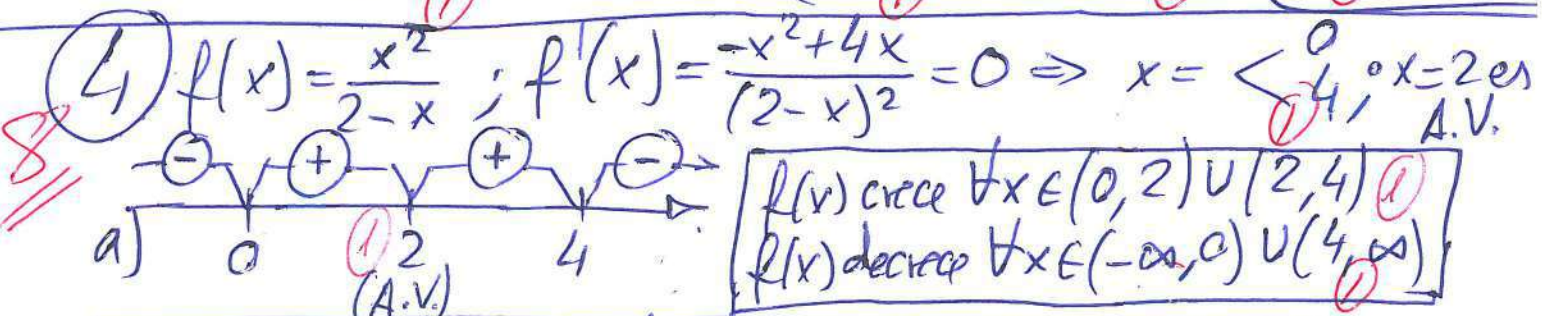 ④ f(x) = x²/(2-x) ; f'(x) = (-x²+4x)/(2-x)² = 0 ⇒ x = < 0 4 ; x=2 es A.V.
8
① 
- + + -
a) 0 ① 2 4
(A.V.)
f(x) crece ∀x∈(0,2)∪(2,4) ①
f(x) decrece ∀x∈(-∞,0)∪(4,∞) ①